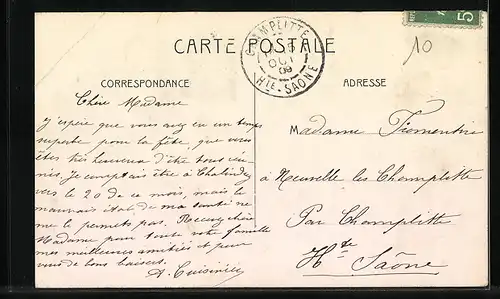 CARTE POSTALE
CHAMPLITTE
OCT
09
Hte-SAÔNE
5
10
CORRESPONDANCE
ADRESSE
Chère Madame
J'espère que vous avez eu un temps
superbe pour la fête, que vous
êtes très heureux d'être tous réu-
nis, je comptais être à Chalindrey
vers le 20 de ce mois, mais le
mauvais état de ma santé ne
me le permets pas. Recevez chère
Madame pour toute votre famille
mes meilleures amitiés et pour
vous de bons baisers.
A. Cuisinier
Madame
à Neuvelle les Champlitte
Par Champlitte
Hte Saône